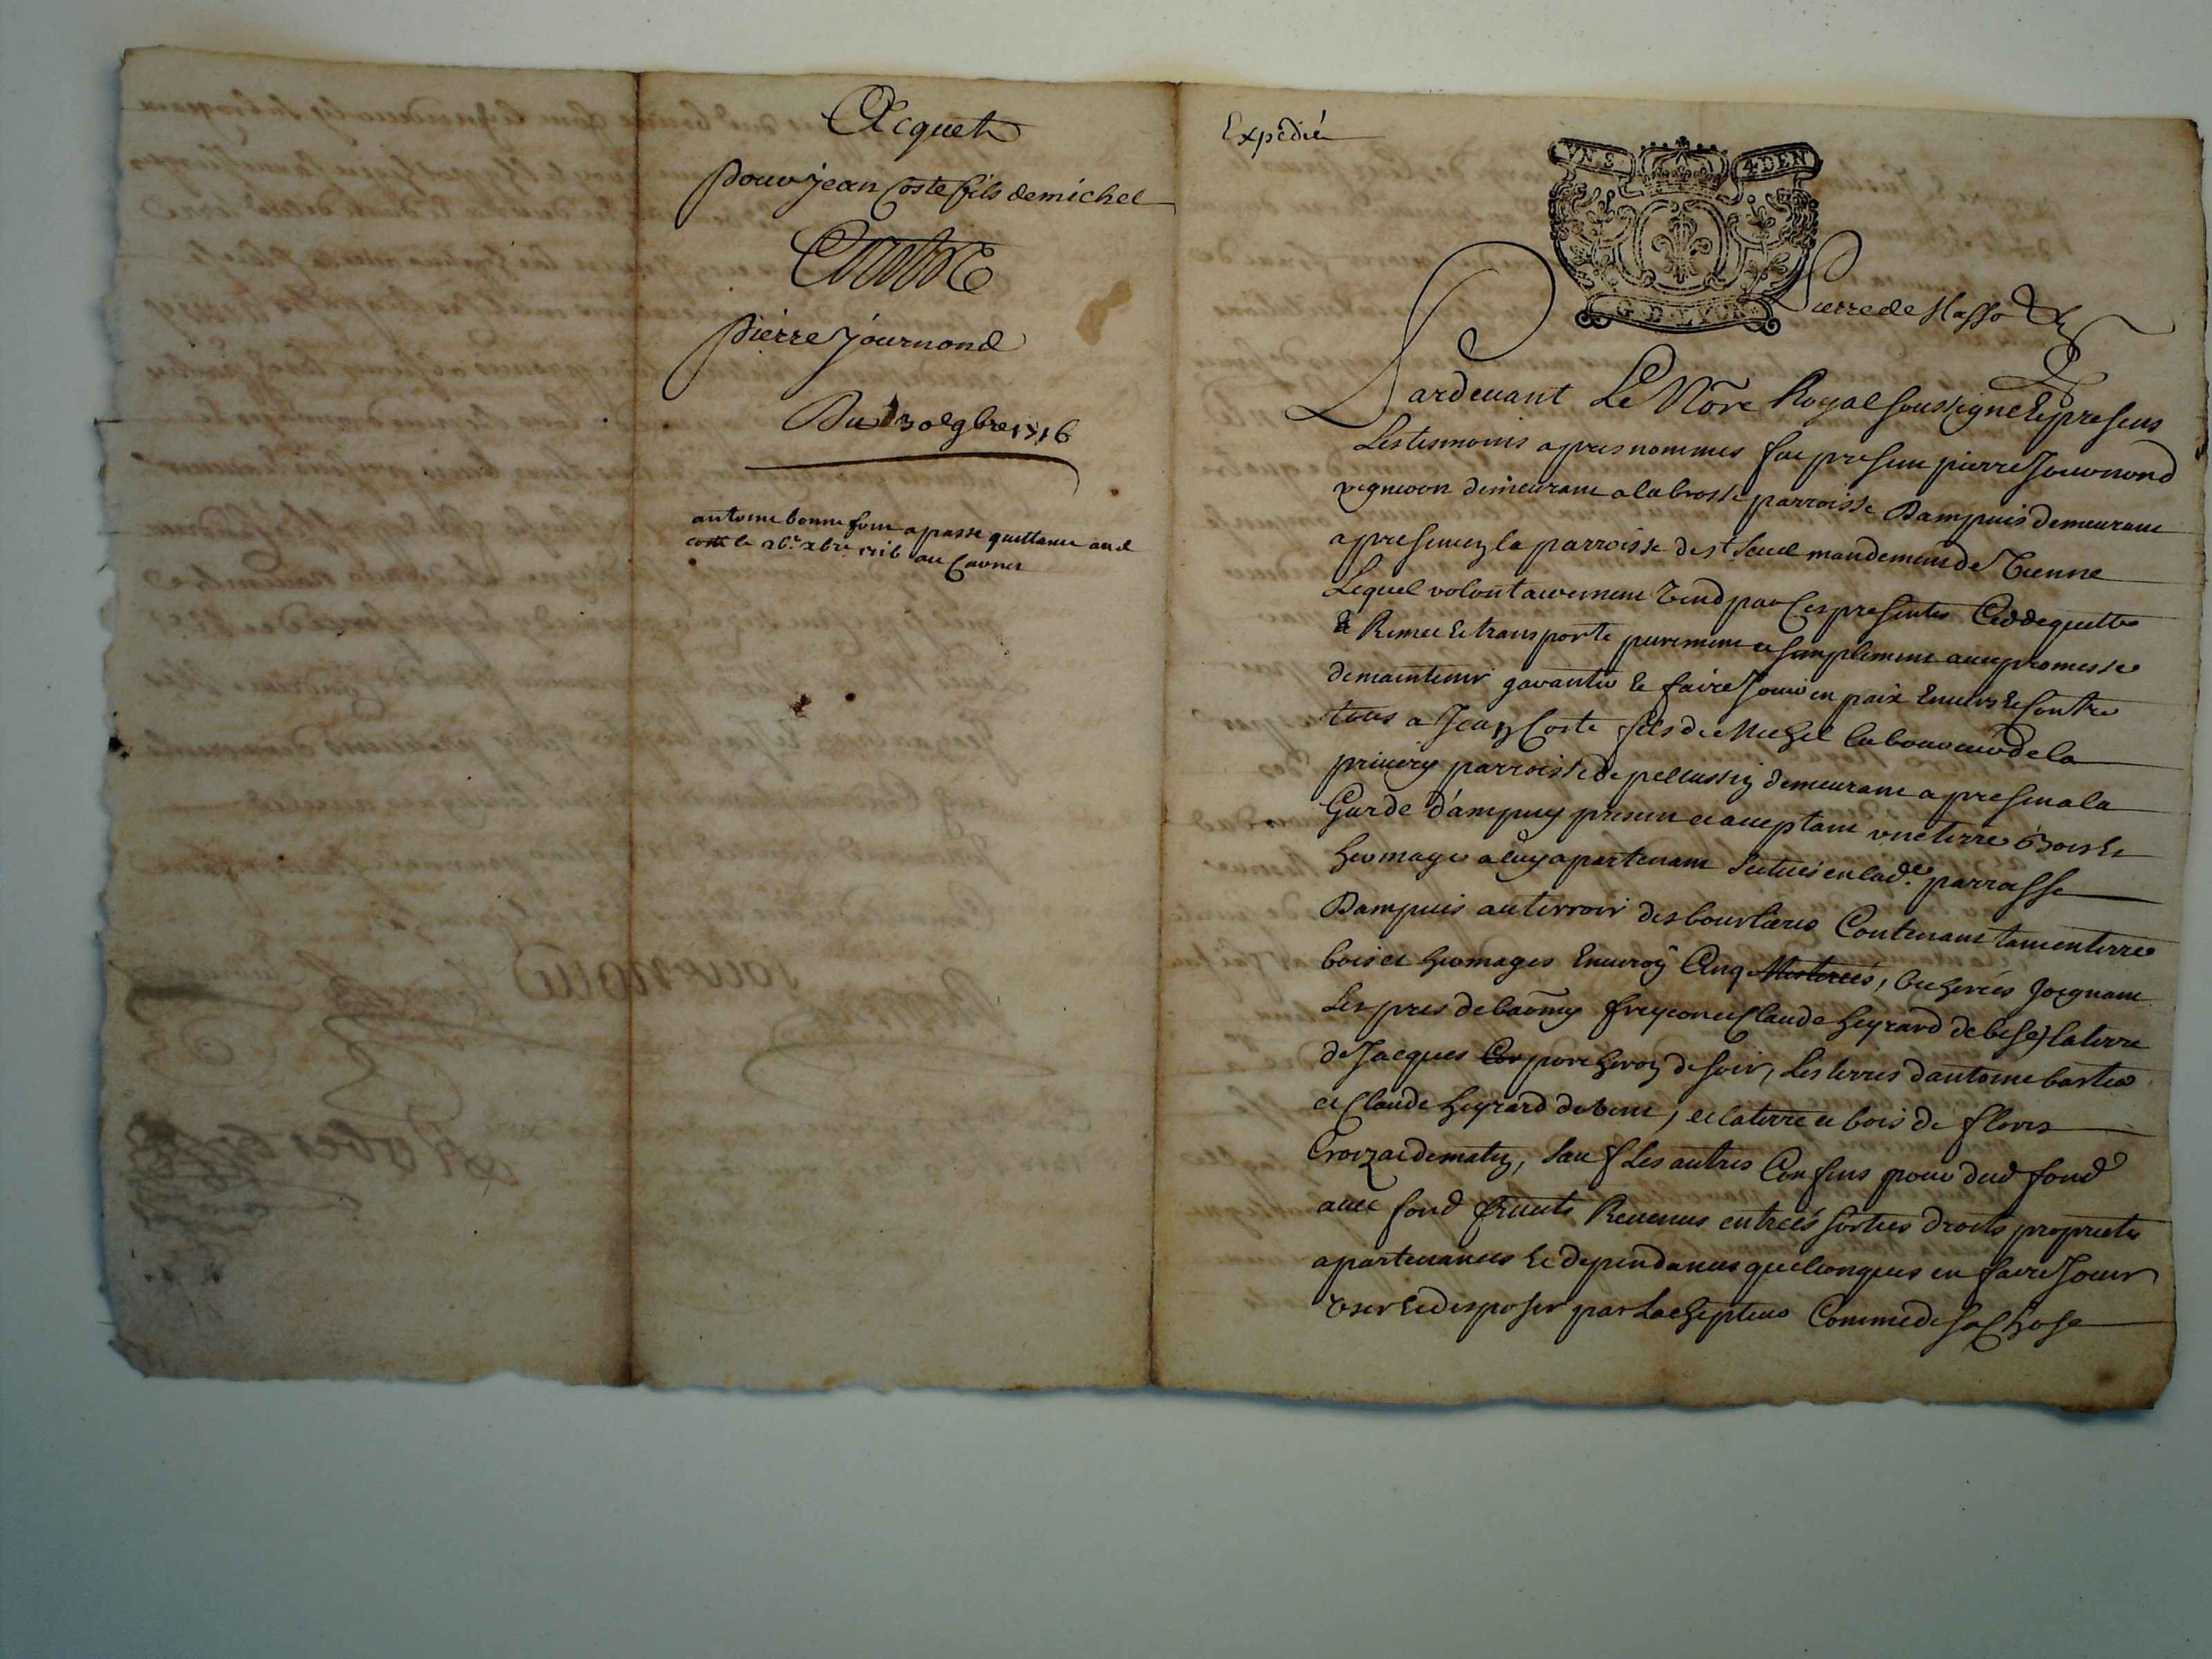 Acquet
pour jean Coste fils de michel
Contre
pierre journond
Du 30e 9bre 1716
antoine bonnefom a passe quittance aud
coste le 26e xbre 1716 au Carnet
Expedié
VN S. 4 DEN
G. D LYON
pierre de
Pardevant Le Nore Royal soussigne & presens
Les tesmoins apres nommes fut present pierre Journond
vigneron demeurant a la brosse parroisse Dampuis demeurant
a present en la parroisse de st mandement de Vienne
Lequel volontairement Vend par ces presentes Cedde quitte
& Remet & transporte purement et simplement avec promesse
de maintenir garantir & faire Jouir en paix Envers & Contre
tous a Jean Coste fils de Michel laboureur de la
parroisse de pellussin demeurant a present a la
Garde d'ampuy present et acceptant une terre bois &
hermage a luy apartenant scitues en lad.e parroisse
Dampuis au terroir des bourlieres Contenant tant en terre
bois et hermages Environ Cinq Mesterées, bicherées Joignant
Les pres de barthmy freycon et Claude heyrard de bise, la terre
de Jacques Cor porcheron de soir, Les terres dantoine bartin
et Claude heyrard de vent, et la terre et bois de floris
Croizat de matin, sauf Les autres Confins pour dud fond
avec fond fruits Revenus entrées sorties droits proprietes
apartenances & dependances quelconques en faire Jouir
User & disposer par Lachepteur Comme de sa Chose